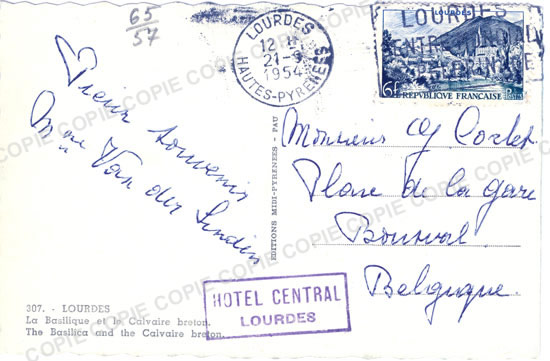 65
57
LOURDES
12 H
21-9
1954
HAUTES-PYRENEES
LOURDES
LOURDES
6F RÉPUBLIQUE FRANÇAISE Postes
Pieux souvenir
Mme Van der Linden
Monsieur
Place de la gare
Bomal
Belgique
EDITIONS MIDI-PYRENEES - PAU
HOTEL CENTRAL
LOURDES
307. - LOURDES
La Basilique et le Calvaire breton.
The Basilica and the Calvaire breton.
COPIE COPIE COPIE COPIE COPIE